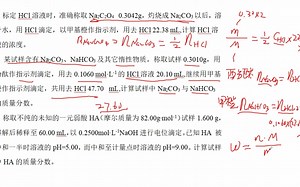 标定 HCl溶液时，准确称取 Na₂C₂O₄ 0.3042g，灼烧成 Na₂CO₃以后，溶
水，用 HCl滴定，以甲基橙作指示剂，用去 HCl 22.38 mL，计算 HCl溶
的浓度。
某试样含有 Na₂CO₃、NaHCO₃及其它惰性物质。称取试样 0.3010g，用
酞作指示剂滴定，用去 0.1060 mol·L⁻¹的 HCl溶液 20.10 mL，继续用甲基
作指示剂滴定，共用去 HCl 47.70 mL，计算试样中 Na₂CO₃与 NaHCO₃
质量分数。
27.60
称取不纯的未知的一元弱酸 HA(摩尔质量为 82.00g/mol)试样 1.600 g，
解后稀释至 60.00 mL，以 0.2500mol·L⁻¹NaOH 进行电位滴定。已知 HA 被
和一半时溶液的 pH=5.00，而中和至计量点时溶液的 pH=9.00。计算试样
HA 的质量分数。
= ½ n HCl
m/M = ½ C HCl
w = n·M/m